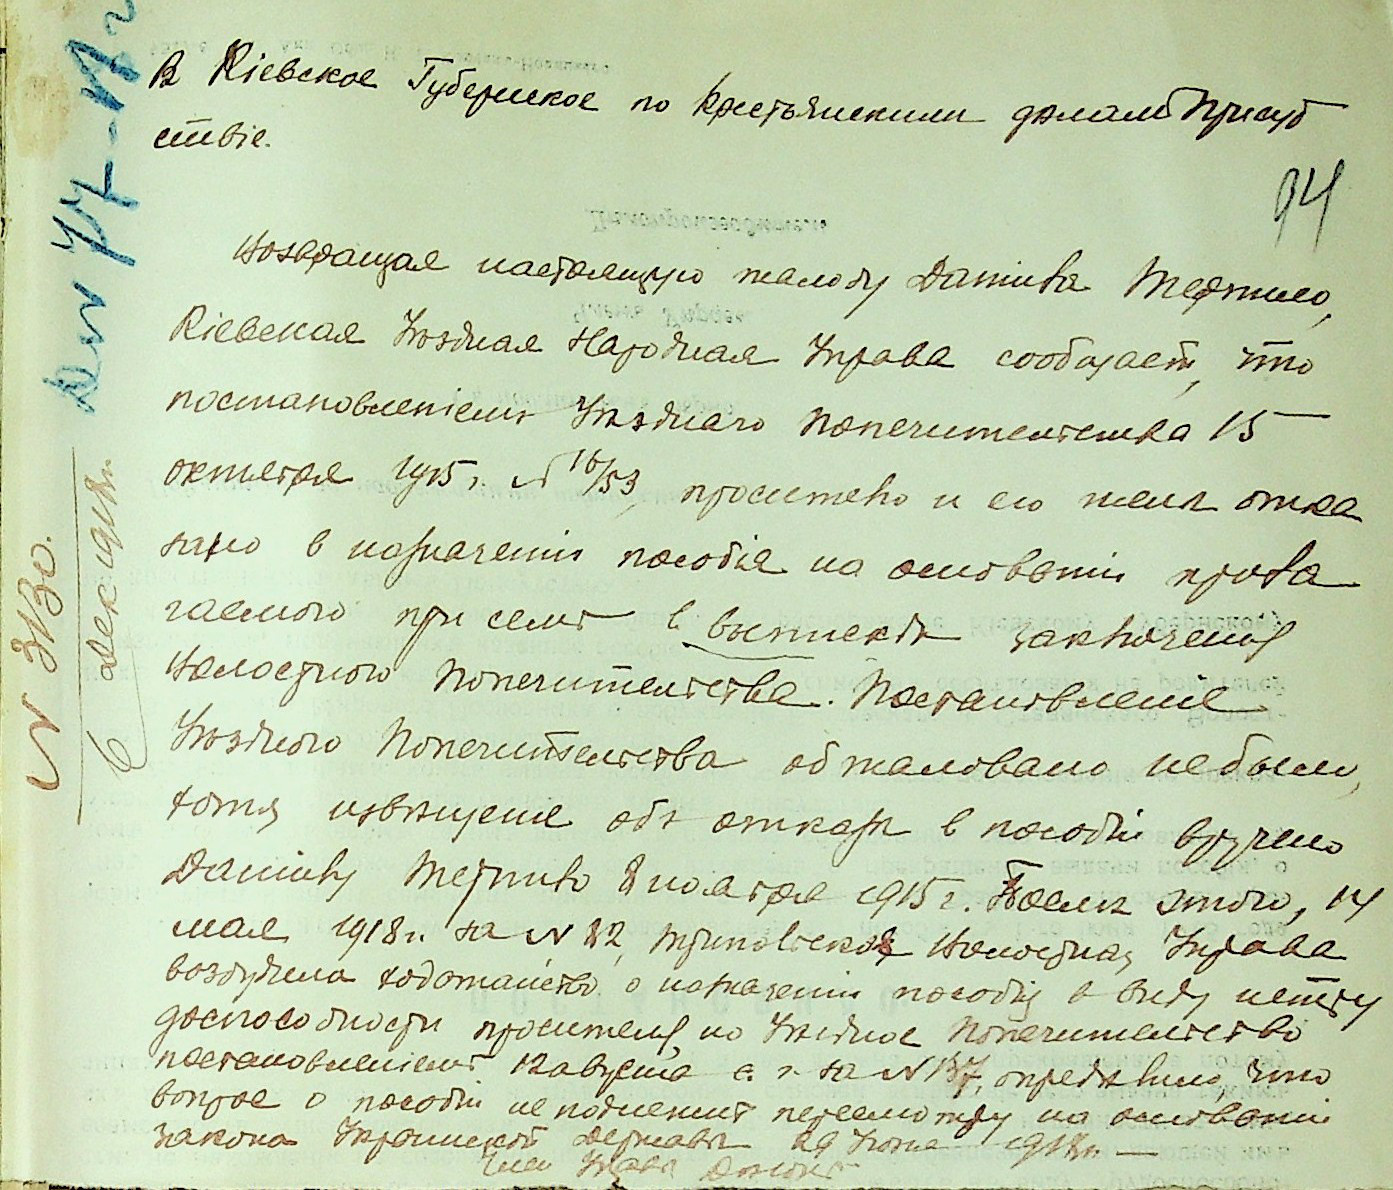 В Кіевское Губернское по Крестьянским деламъ Присут
ствіе.
94
Возвращая настоящую жалобу Даниила Терпило,
Кіевская Уѣздная Народная Управа сообщает, что
постановленіемъ Уѣзднаго Попечительства 15
октября 1915 г. № 16/53, просителю и его женѣ отка
зано в назначеніи пособія на основаніи прила
гаемого при семъ в выпискѣ заключенія
Волостного Попечительства. Постановленіе
Уѣздного Попечительства обжаловано не было,
хотя извѣщеніе объ отказѣ в пособіи вручено
Даниилу Терпило 8 ноября 1915 г. Послѣ этого, 14
мая 1918 г. за № 82, Трипольская Волостная Управа
возбудила ходатайство о назначеніи пособія в виду нетру
доспособности просителя, но Уѣздное Попечительство
постановленіемъ 12 августа с. г. за № 137, опредѣлило, что
вопрос о пособіи не подлежит пересмотру на основаніи
закона Украинской Державы 29 Іюня 1918 г.
Член Управы
№ 3130.
6 дек 1918 г.